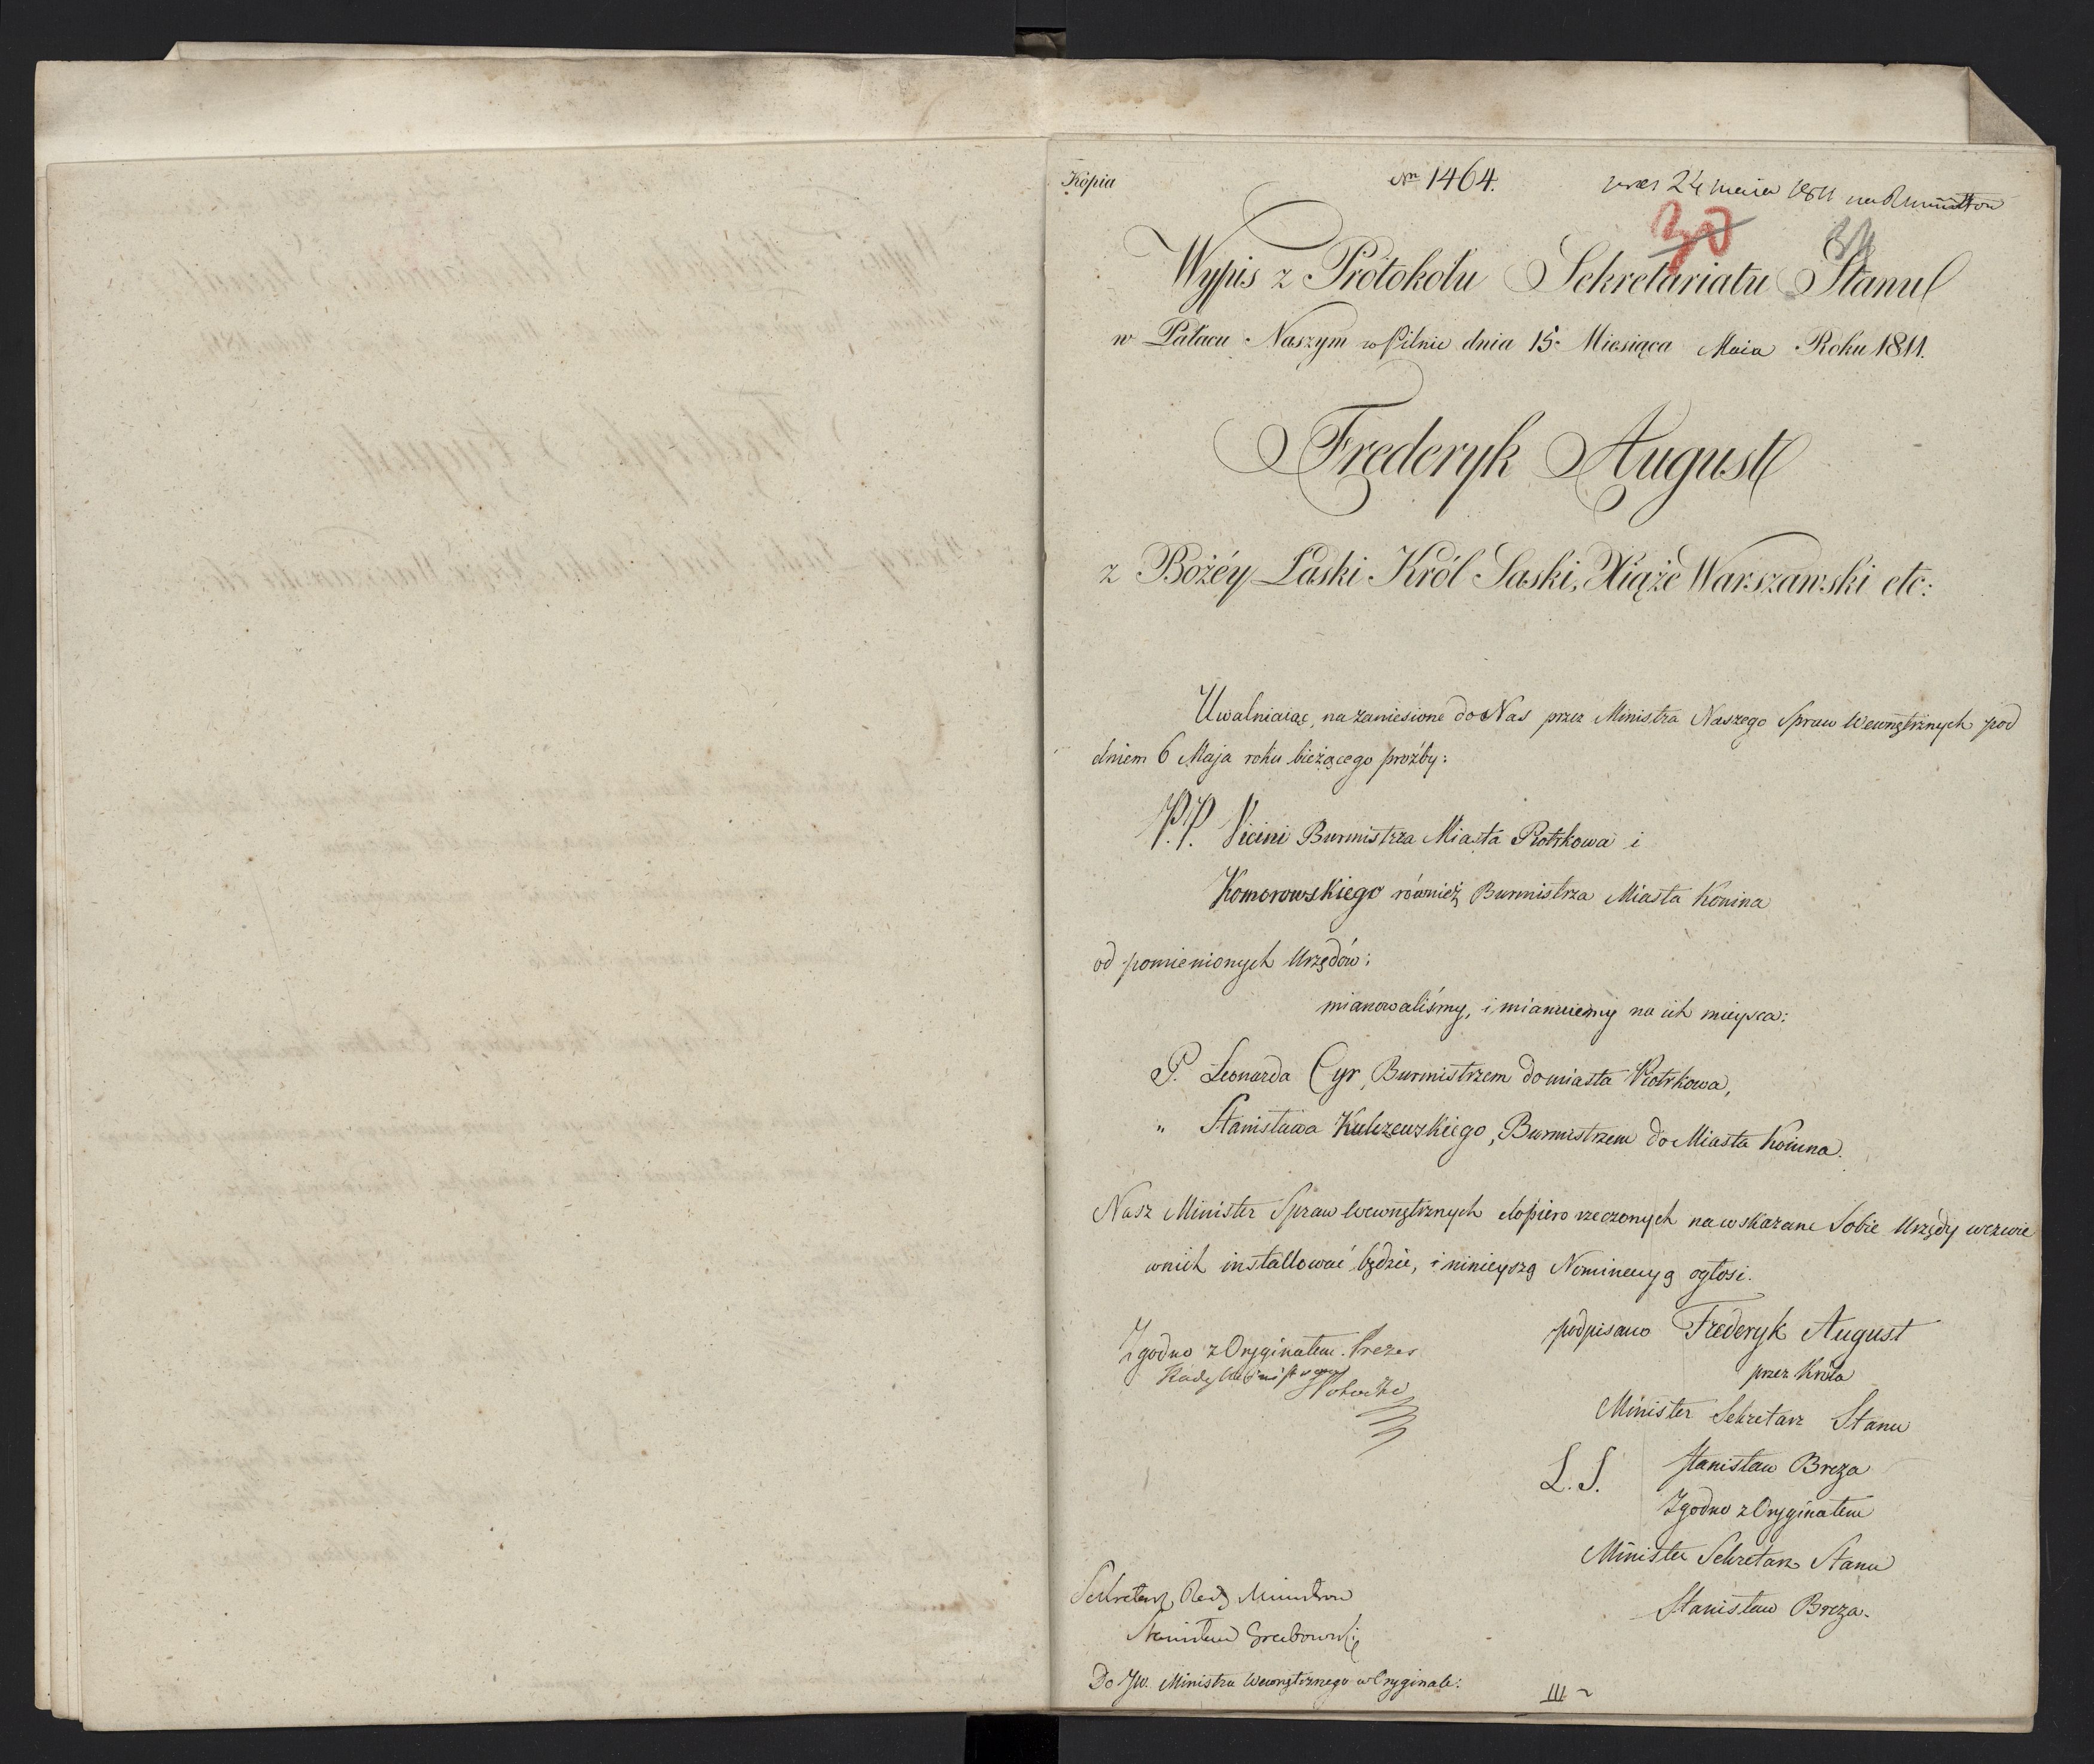 Kopia
Nro 1464.
24 maia 1811
30
Wypis z Protokołu Sekretariatu Stanu
w Pałacu Naszym w Pilnic dnia 15. Miesiąca Maia Roku 1811.
Frederyk August
z Bożéy Łaski Król Saski, Xiąże Warszawski etc:
Uwalniaiąc, na zaniesione do Nas przez Ministra Naszego Spraw Wewnętrznych pod
dniem 6 Maja roku bieżącego proźby:
P.P. Vicini Burmistrza Miasta Piotrkowa i
Komorowskiego również Burmistrza Miasta Konina
od pomienionych Urzędów:
mianowaliśmy, i mianuiemy na ich mieysca:
P. Leonarda Cyr, Burmistrzem do miasta Piotrkowa,
„ Stanisława Kulczewskiego, Burmistrzem do Miasta Konina.
Nasz Minister Spraw Wewnętrznych dopiero rzeczonych na wskazane Sobie Urzędy wezwie
w nich installować będzie, i ninieyszą Nominacyą ogłosi.
podpisano Frederyk August
przez Króla
Minister Sekretarz Stanu
L. S. Stanisław Breza
Zgodno z Oryginałem
Minister Sekretarz Stanu
Stanisław Breza.
Zgodno z Oryginałem. Prezes
Rady Ministrow
Potocki
Sekretarz Rady Ministrow
Stanisław Grabowski
Do JW. Ministra Wewnętrznego w Oryginale.
III